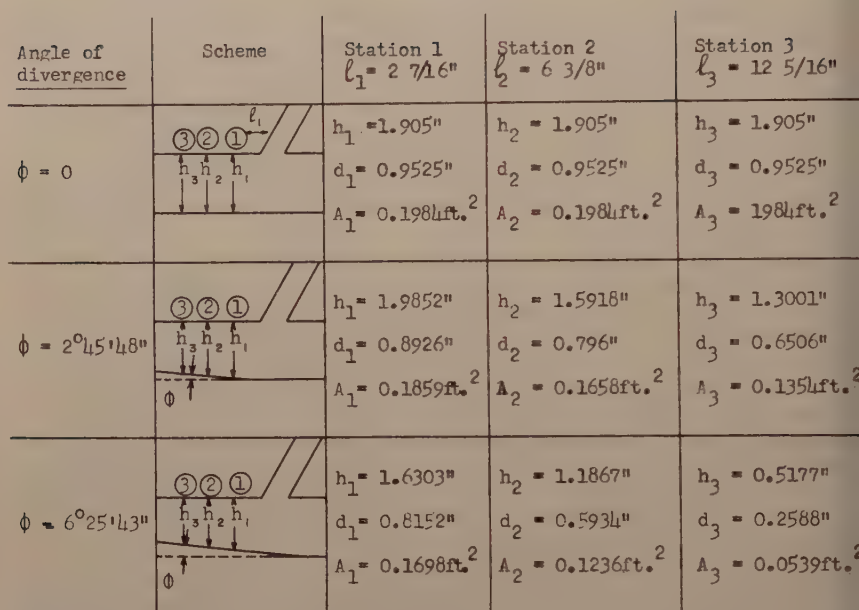 Angle of divergence
Scheme
Station 1
ℓ₁ = 2 7/16"
Station 2
ℓ₂ = 6 3/8"
Station 3
ℓ₃ = 12 5/16"
ϕ = 0
ℓ₁
③ ② ①
h₃ h₂ h₁
h₁ = 1.905"
d₁ = 0.9525"
A₁ = 0.1984ft.²
h₂ = 1.905"
d₂ = 0.9525"
A₂ = 0.1984ft.²
h₃ = 1.905"
d₃ = 0.9525"
A₃ = 1984ft.²
ϕ = 2°45'48"
③ ② ①
h₃ h₂ h₁
ϕ
h₁ = 1.9852"
d₁ = 0.8926"
A₁ = 0.1859ft.²
h₂ = 1.5918"
d₂ = 0.796"
A₂ = 0.1658ft.²
h₃ = 1.3001"
d₃ = 0.6506"
A₃ = 0.1354ft.²
ϕ = 6°25'43"
③ ② ①
h₃ h₂ h₁
ϕ
h₁ = 1.6303"
d₁ = 0.8152"
A₁ = 0.1698ft.²
h₂ = 1.1867"
d₂ = 0.5934"
A₂ = 0.1236ft.²
h₃ = 0.5177"
d₃ = 0.2588"
A₃ = 0.0539ft.²